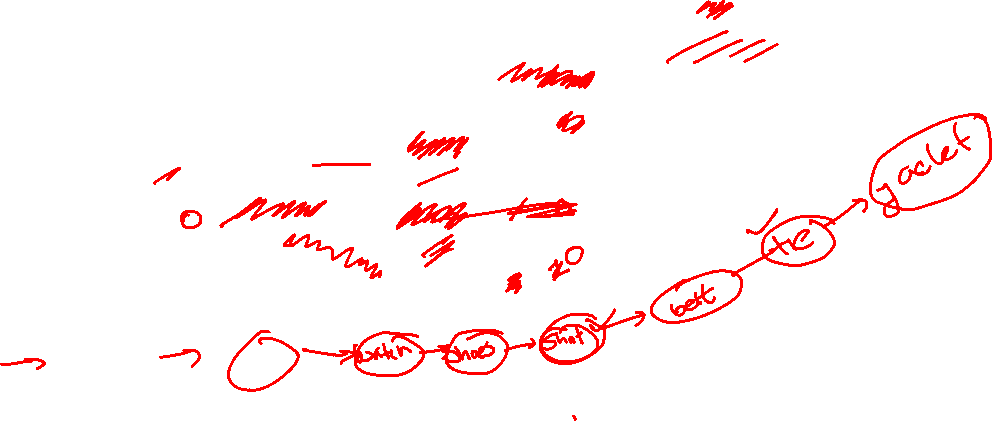 shoes
shirt
belt
tie
jacket